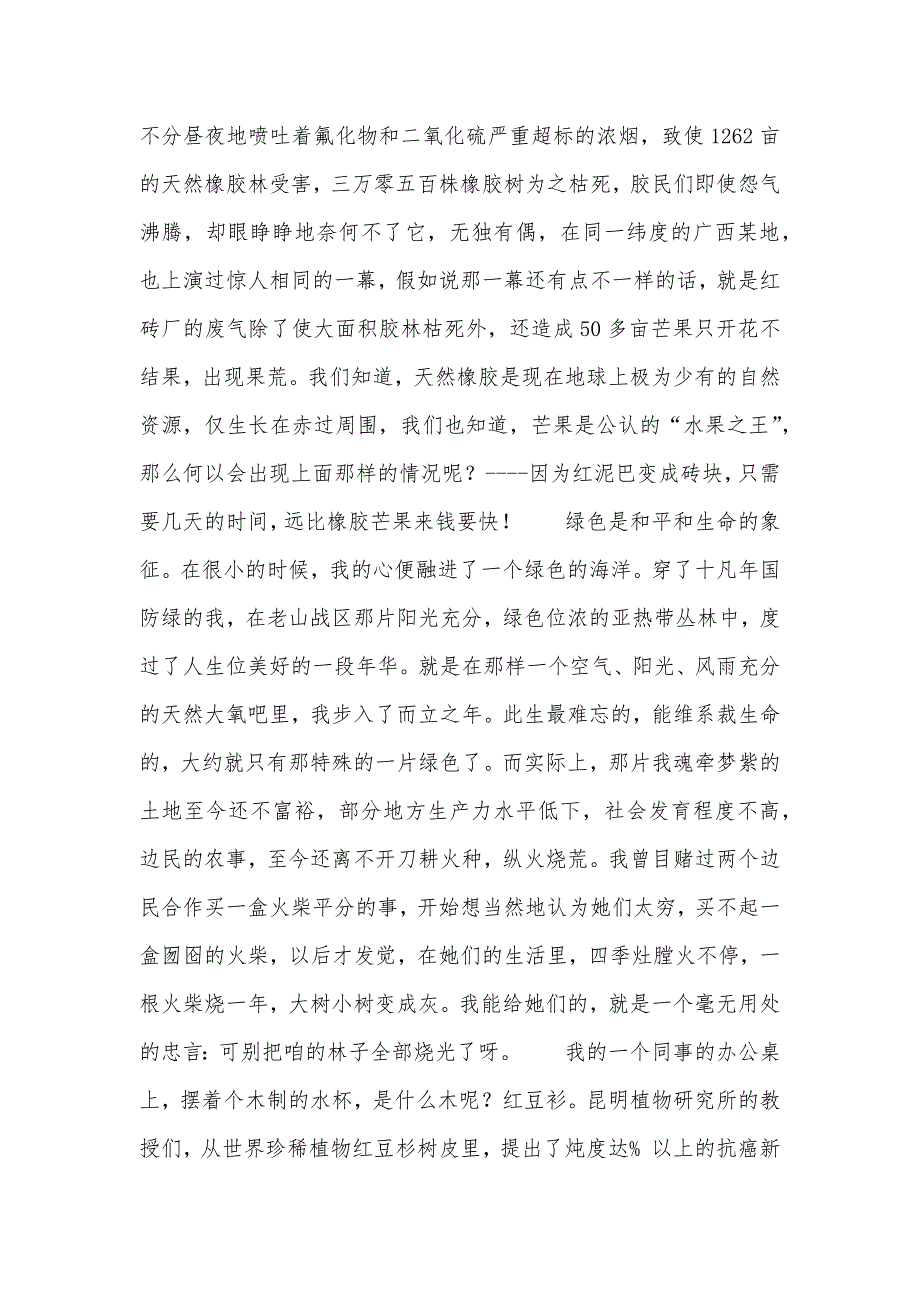 不分昼夜地喷吐着氟化物和二氧化硫严重超标的浓烟，致使 1262 亩
的天然橡胶林受害，三万零五百株橡胶树为之枯死，胶民们即使怨气
沸腾，却眼睁睁地奈何不了它，无独有偶，在同一纬度的广西某地，
也上演过惊人相同的一幕，假如说那一幕还有点不一样的话，就是红
砖厂的废气除了使大面积胶林枯死外，还造成 50 多亩芒果只开花不
结果，出现果荒。我们知道，天然橡胶是现在地球上极为少有的自然
资源，仅生长在赤过周围，我们也知道，芒果是公认的“水果之王”，
那么何以会出现上面那样的情况呢？----因为红泥巴变成砖块，只需
要几天的时间，远比橡胶芒果来钱要快！　　绿色是和平和生命的象
征。在很小的时候，我的心便融进了一个绿色的海洋。穿了十凡年国
防绿的我，在老山战区那片阳光充分，绿色位浓的亚热带丛林中，度
过了人生位美好的一段年华。就是在那样一个空气、阳光、风雨充分
的天然大氧吧里，我步入了而立之年。此生最难忘的，能维系裁生命
的，大约就只有那特殊的一片绿色了。而实际上，那片我魂牵梦紫的
土地至今还不富裕，部分地方生产力水平低下，社会发育程度不高，
边民的农事，至今还离不开刀耕火种，纵火烧荒。我曾目赌过两个边
民合作买一盒火柴平分的事，开始想当然地认为她们太穷，买不起一
盒囫囵的火柴，以后才发觉，在她们的生活里，四季灶膛火不停，一
根火柴烧一年，大树小树变成灰。我能给她们的，就是一个毫无用处
的忠言：可别把咱的林子全部烧光了呀。　　我的一个同事的办公桌
上，摆着个木制的水杯，是什么木呢？红豆衫。昆明植物研究所的教
授们，从世界珍稀植物红豆杉树皮里，提出了炖度达% 以上的抗癌新